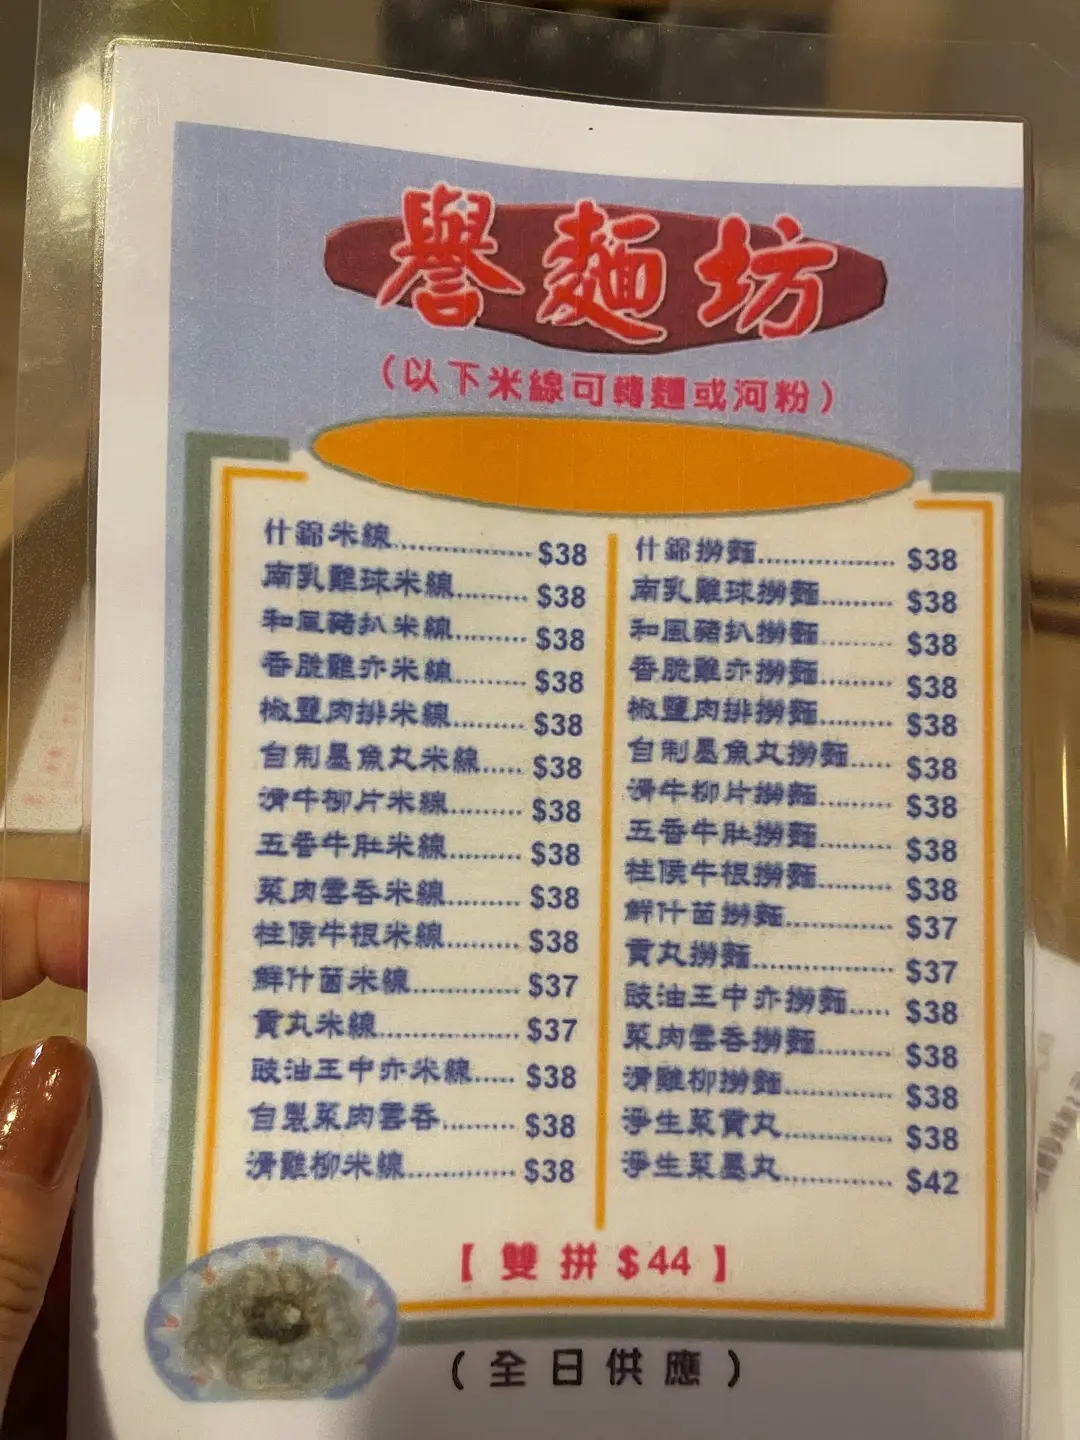 譽麵坊
（以下米線可轉麵或河粉）
什錦米線 $38
南乳雞球米線 $38
和風豬扒米線 $38
香脆雞亦米線 $38
椒鹽肉排米線 $38
自制墨魚丸米線 $38
滑牛柳片米線 $38
五香牛肚米線 $38
菜肉雲吞米線 $38
柱侯牛根米線 $38
鮮什菌米線 $37
貢丸米線 $37
豉油王中亦米線 $38
自製菜肉雲吞 $38
滑雞柳米線 $38
什錦撈麵 $38
南乳雞球撈麵 $38
和風豬扒撈麵 $38
香脆雞亦撈麵 $38
椒鹽肉排撈麵 $38
自制墨魚丸撈麵 $38
滑牛柳片撈麵 $38
五香牛肚撈麵 $38
柱侯牛根撈麵 $38
鮮什菌撈麵 $37
貢丸撈麵 $37
豉油王中亦撈麵 $38
菜肉雲吞撈麵 $38
滑雞柳撈麵 $38
淨生菜貢丸 $38
淨生菜墨丸 $42
【雙拼$44】
（全日供應）